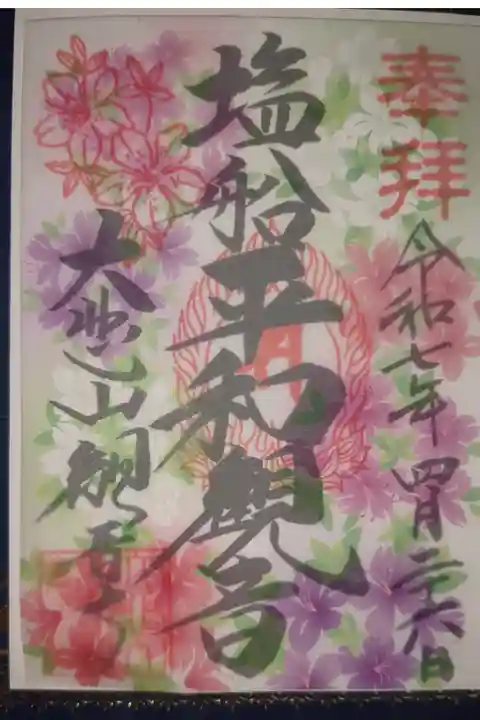 奉拝
令和七年四月二十六日
塩船平和観音
大悲山観音寺